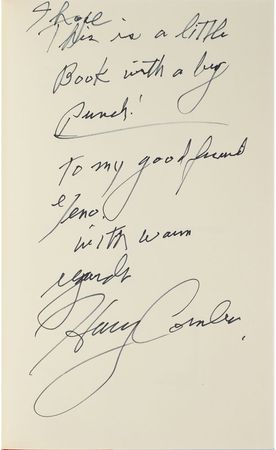 I hope
this is a little
Book with a big
punch!
to my good friend
Geno.
with warm
regards
Harry